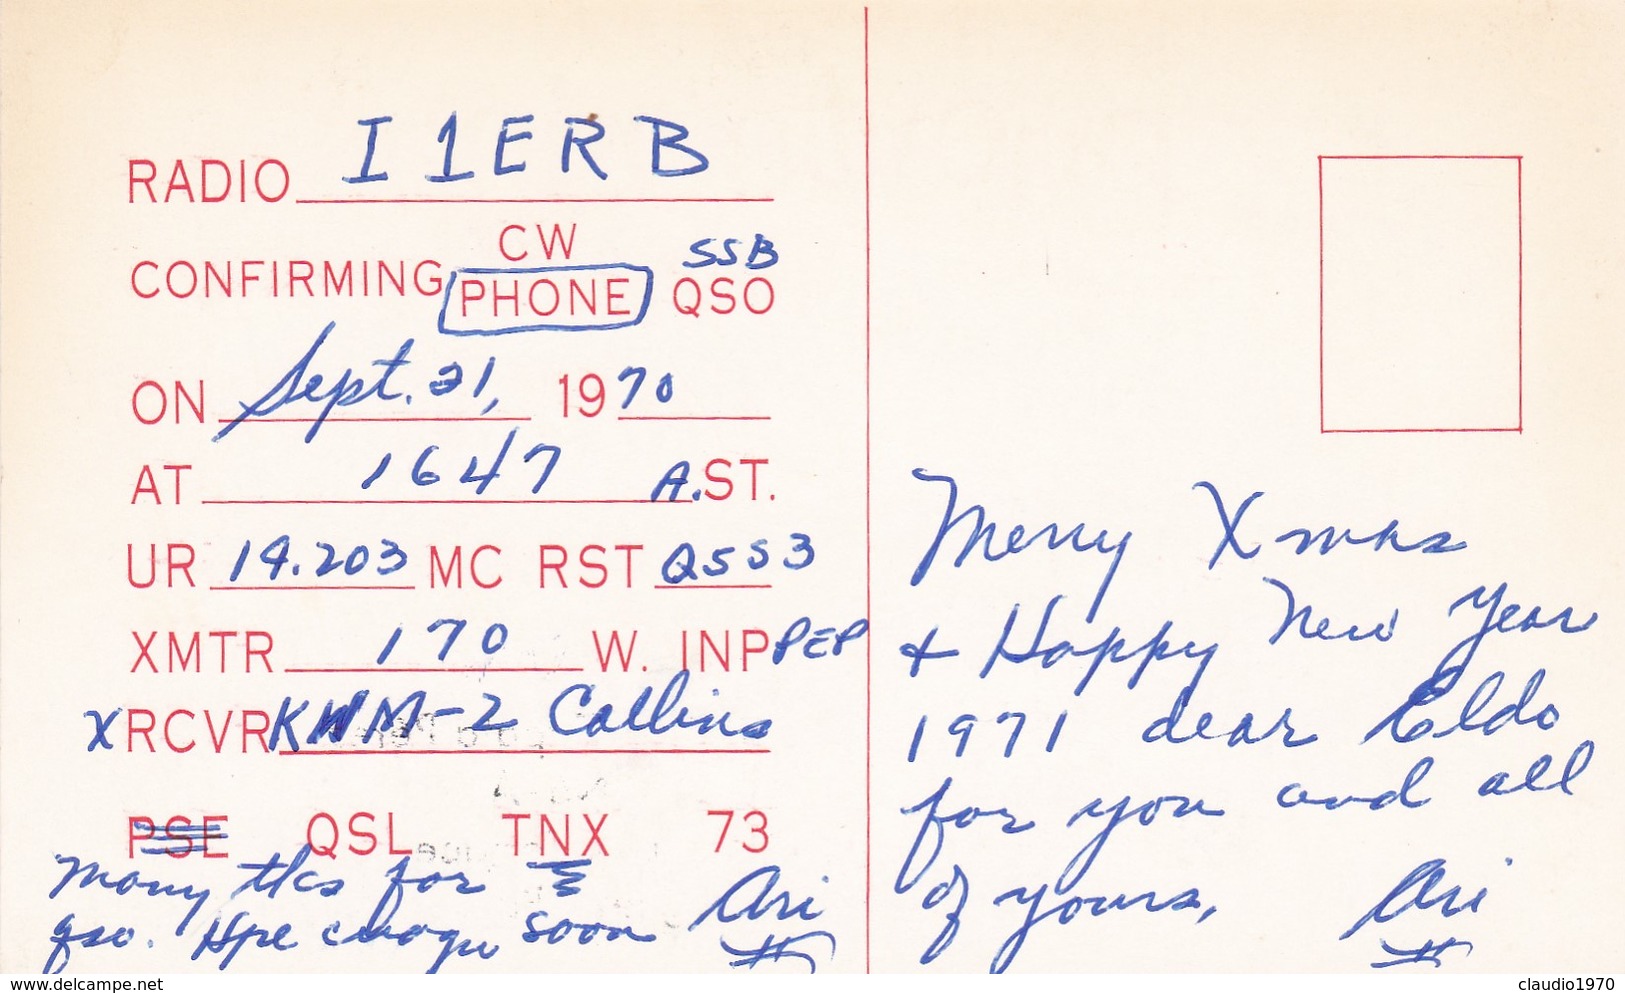 RADIO I1ERB
CW SSB
CONFIRMING PHONE QSO
ON Sept. 21, 1970
AT 1647 A.ST.
UR 14.203 MC RST Q5S3
XMTR 170 W. INP PEP
XRCVR KWM-2 Collins
PSE QSL TNX 73
Many tks for
qso. Hpe cuagn soon Ari
Merry Xmas
+ Happy New Year
1971 dear Eldo
for you and all
of yours,
Ari
www.delcampe.net
claudio1970